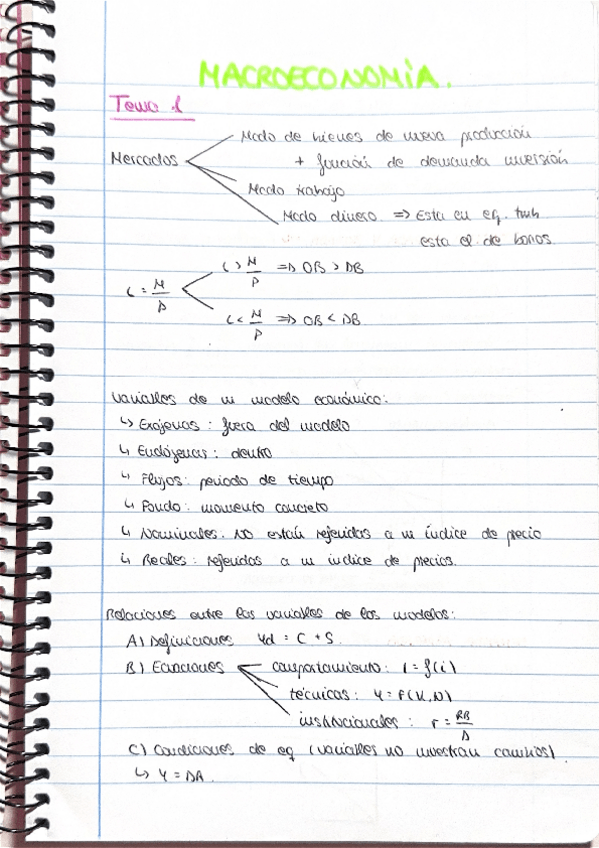 MACROECONOMÍA.
Tema 1
Mercados
Mcdo de bienes de nueva producción
+ función de demanda inversión
Mcdo trabajo
Mcdo dinero => Esta en eq. tmb
esta el de bonos.
L = M/P
L > M/P => OB > DB
L < M/P => OB < DB
Variables de un modelo económico:
↳ Exógenas : fuera del modelo
↳ Endógenas : dentro
↳ Flujos : periodo de tiempo
↳ Fondo : momento concreto
↳ Nominales : NO están referidas a un índice de precio
↳ Reales : referidas a un índice de precios.
Relaciones entre las variables de los modelos:
A) Definiciones Yd = C + S.
B) Ecuaciones
comportamiento : I = f(i)
técnicas : Y = F(K,N)
institucionales : r = RB/D
C) Condiciones de eq (variables no muestran cambios).
↳ Y = DA.